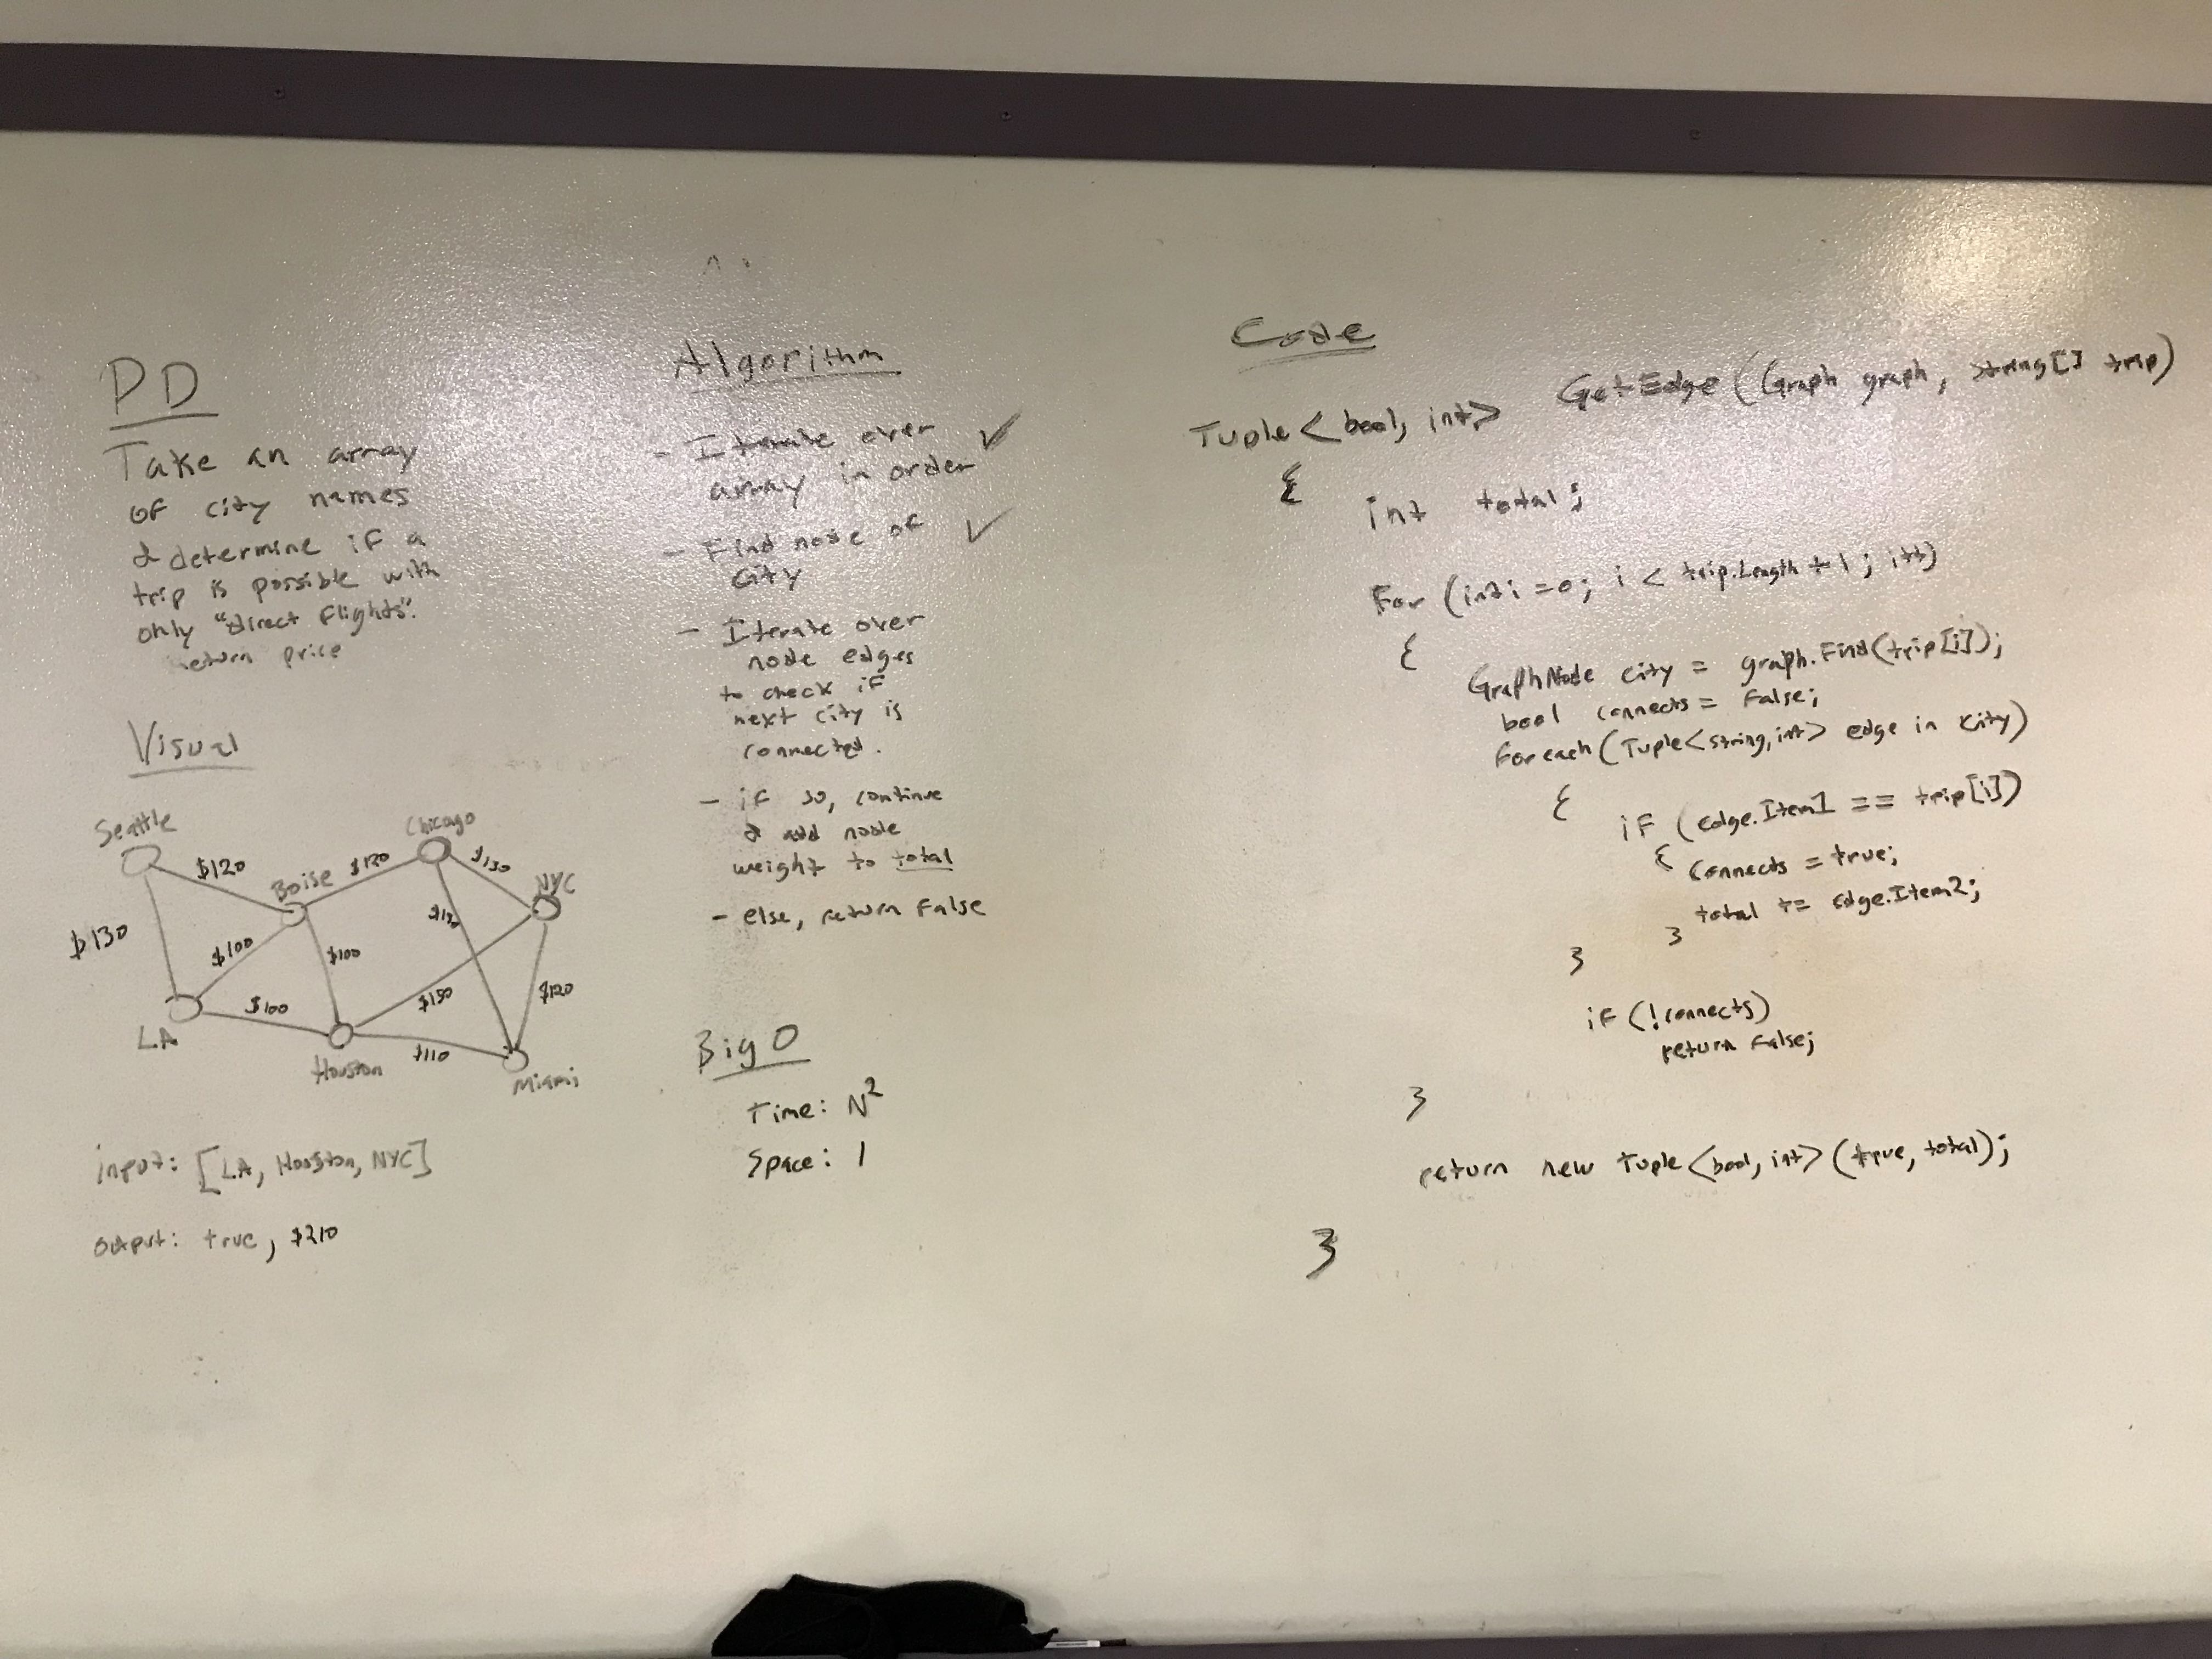 PD
Take an array
of city names
& determine if a
trip is possible with
only "direct flights".
return price
Visual
Seattle
Chicago
$120
Boise
$120
$130
NYC
$130
$100
$100
$120
$100
LA
Houston
$110
Miami
input: [LA, Houston, NYC]
output: true, $210
Algorithm
- Iterate over
array in order ✓
- Find node of ✓
city
- Iterate over
node edges
to check if
next city is
connected.
- if so, continue
& add node
weight to total
- else, return False
Big O
Time: N²
Space: 1
Code
Tuple<bool, int> GetEdge(Graph graph, string[] trip)
{
int total;
For (int i = 0; i < trip.Length + 1; i++)
{
GraphNode city = graph.Find(trip[i]);
bool connects = False;
Foreach(Tuple<string,int> edge in city)
{
if (edge.Item1 == trip[i])
{ connects = true;
total += edge.Item2;
}
}
if (!connects)
return False;
}
return new Tuple<bool, int>(true, total);
}